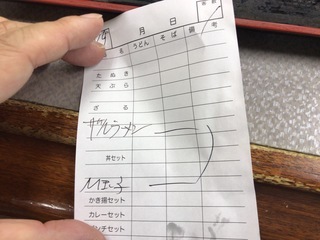 月 日
名 うどん そば 備考
たぬき
天ぷら
ざる
ザルラーメン
丼セット
M玉子
かき揚セット
カレーセット
ンチセット